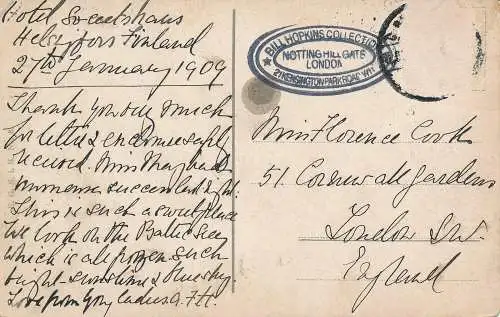 Hotel Societshaus
Helsingfors Finland
27th January 1909
Thank you very much
for letter & enclosure safely
received. Miss May had
immense success last night.
This is such a sweet place
We look on the Baltic Sea
which is all frozen such
bright sunshine & blue sky.
Love from your
BILL HOPKINS COLLECTION
NOTTING HILL GATE
LONDON
21 KENSINGTON PARK ROAD, W11
Miss Florence Cook
51. Cornwall Gardens
London S.W.
England